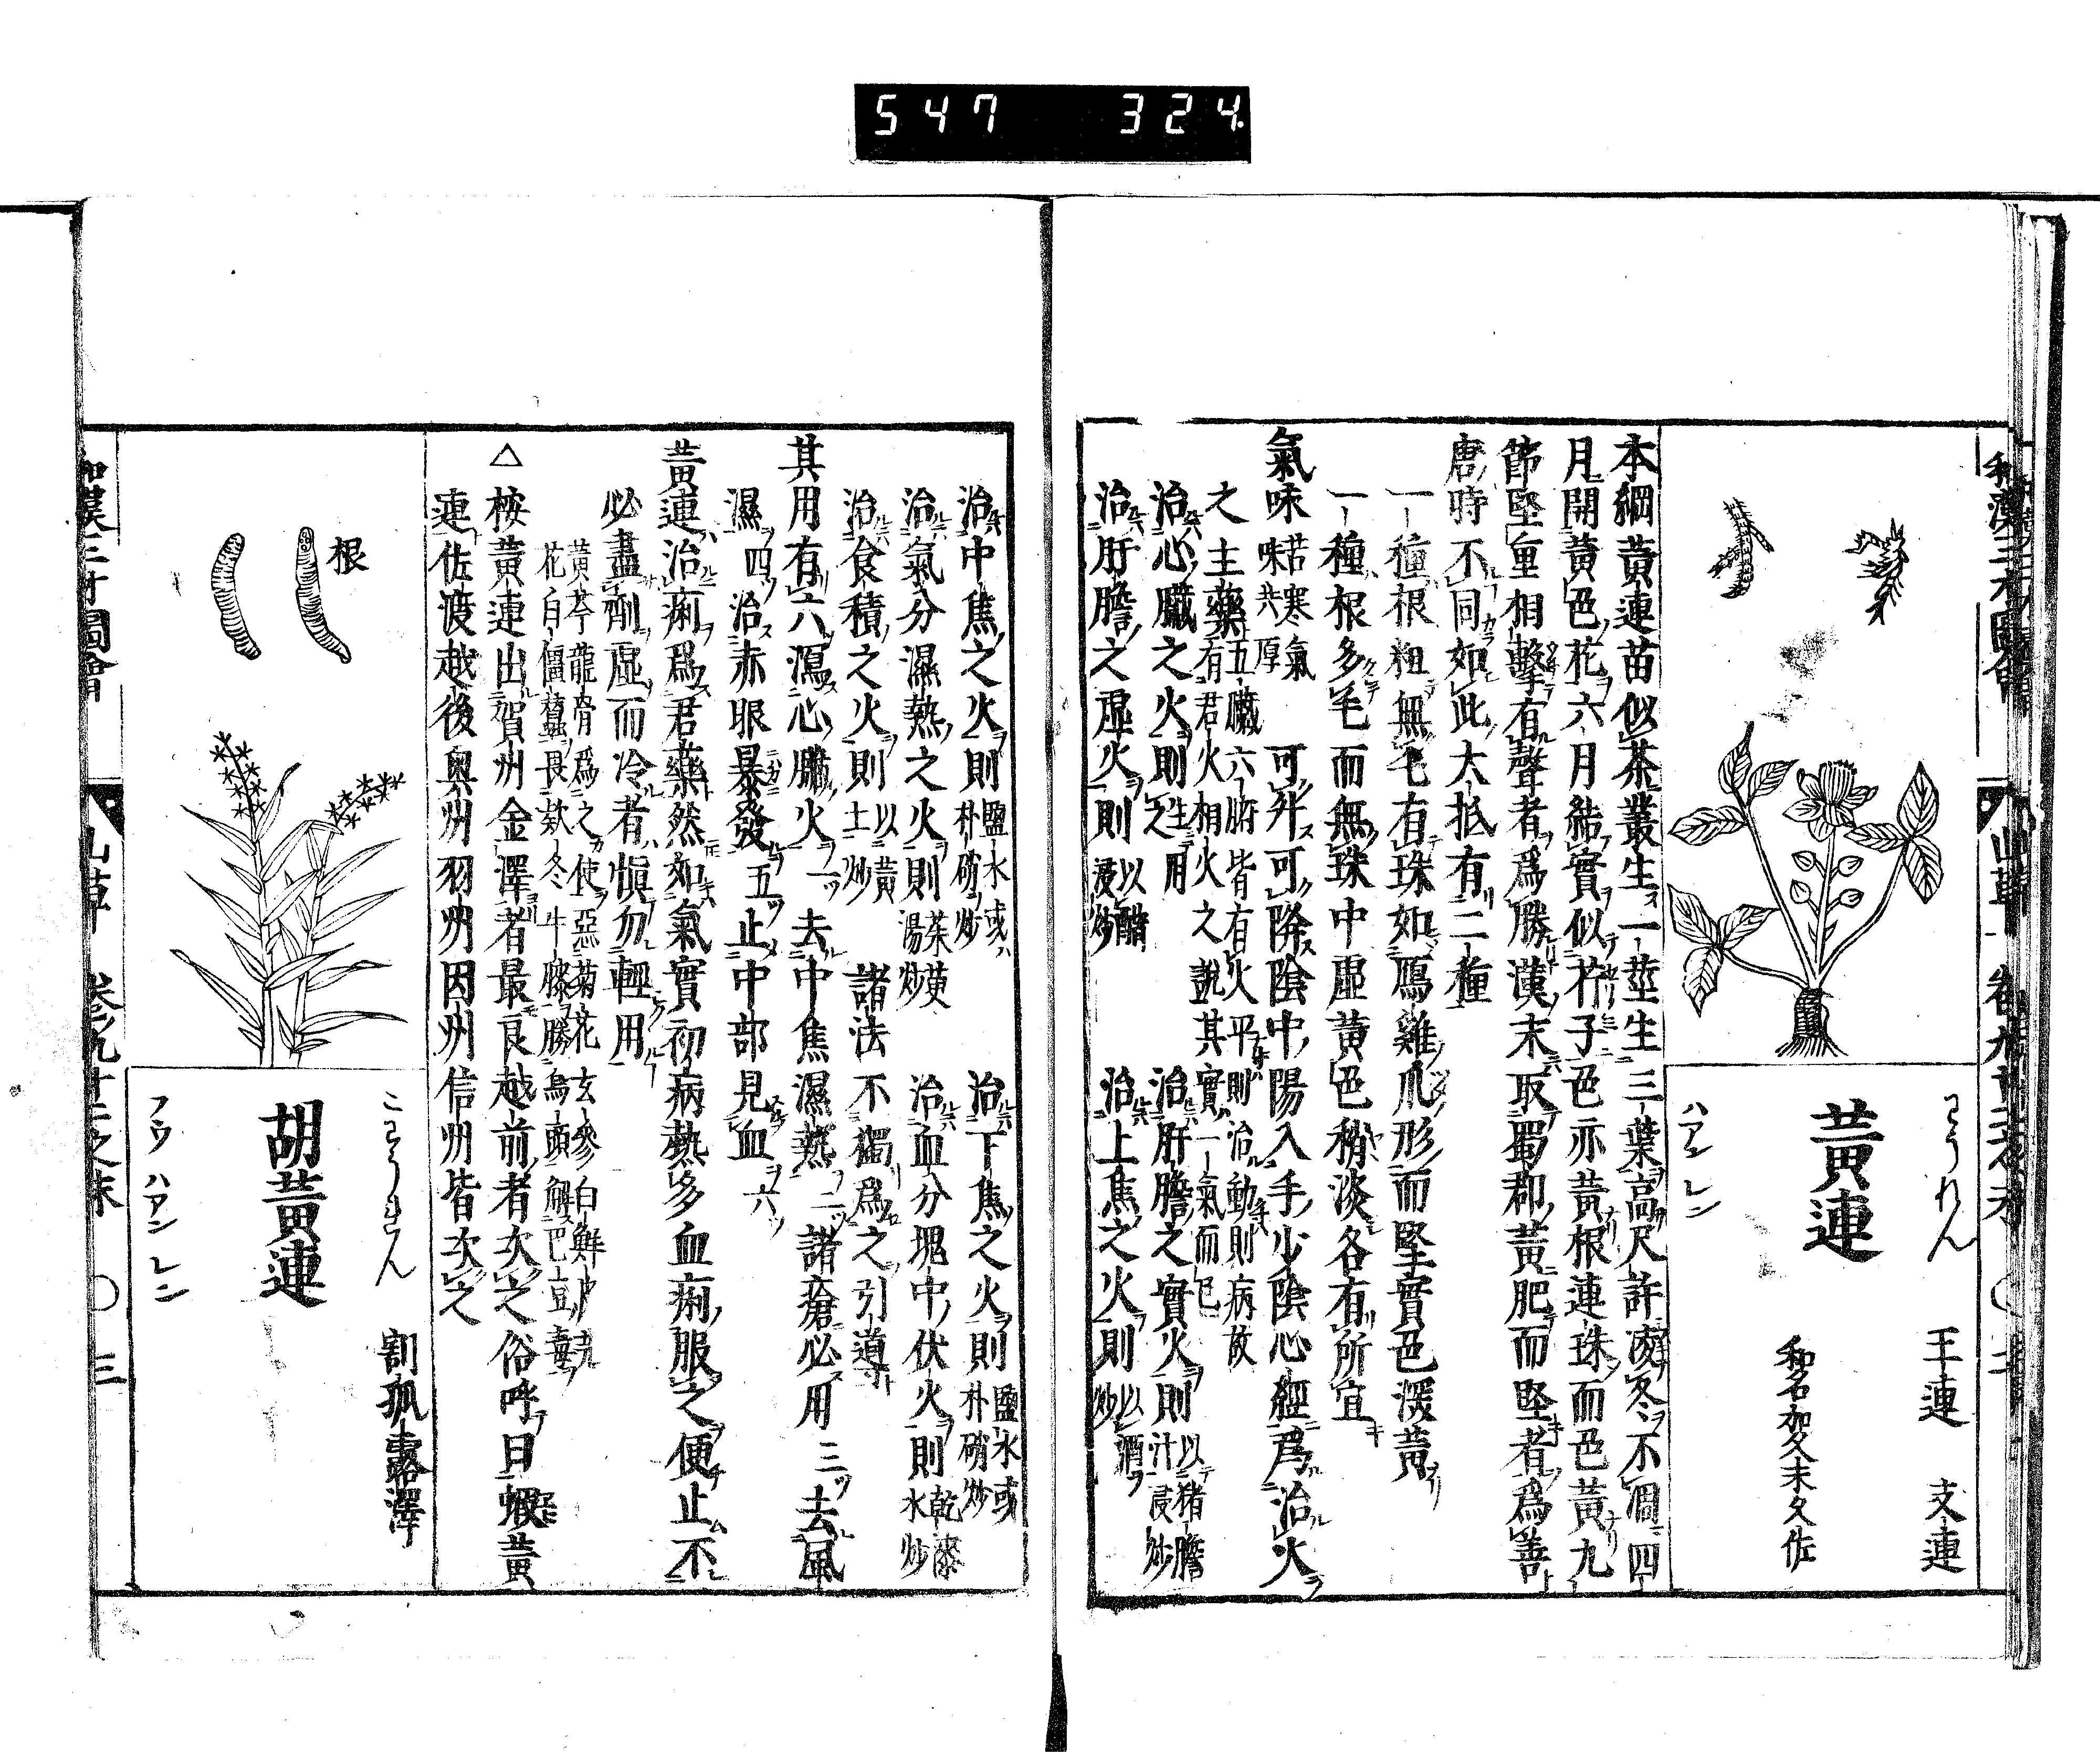 547 324
和漢三才圖會 山草 卷九十二之末
わうれん
王連 支連
黃連
和名加久末久佐
ハアン レン
本綱黃連苗似茶叢生一莖生三葉高尺許凌冬不凋四
月開黃色花六月結實似芹子色亦黃根連珠而色黃九
節堅重相擊有聲者爲勝漢末取蜀郡黃肥而堅者爲善
唐時不同如此大抵有二種
一種根粗無毛有珠如鷹雞爪形而堅實色深黃
一種根多毛而無珠中虛黃色稍淡各有所宜
氣味 苦寒氣味共厚 可升可降陰中陽入手少陰心經爲治火
之主藥 五臟六腑皆有火平則治動則病故有君火相火之說其實一氣而已
治心臟之火則生用之 治肝膽之實火則以猪膽汁浸炒
治肝膽之虛火則以醋浸炒 治上焦之火則以酒炒
治中焦之火則鹽水或朴硝炒 治下焦之火則鹽水或朴硝炒
治氣分濕熱之火則茱萸湯炒 治血分塊中伏火則乾漆水炒
治食積之火則以黃土炒 諸法不獨爲之引導
其用有六瀉心臟火一 去中焦濕熱二 諸瘡必用三 去風
濕四 治赤眼暴發五 止中部見血六
黃連治痢爲君藥然如氣實初病熱多血痢服之便止不
必盡劑虛而冷者愼勿輕用
黃芩龍骨爲之使惡菊花玄參白鮮皮芫
花白僵蠶畏欵冬牛膝勝烏頭解巴豆毒
△桉黃連出賀州金澤者最良越前者次之俗呼曰蝦黃
連佐渡越後奥州羽州因州信州皆次之
根
こわうれん
割孤露澤
胡黃連
フウ ハアン レン
和漢三才圖會 山草 卷九十二之末 〇三